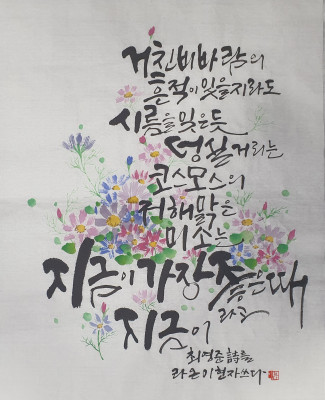 거친 비바람의
흔적이 있을지라도
시름을 잊은듯
덩실거리는
코스모스의
저 해맑은
미소는
지금이 가장 좋은 때
라고
지금이
최영준 詩를
라곤 이현자 쓰다